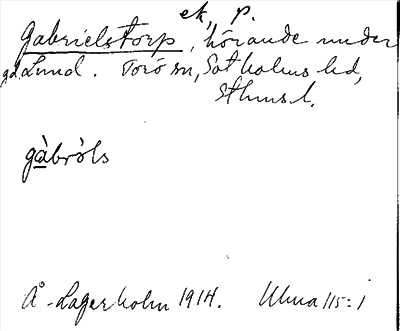 ek, p.
Gabrielstorp, hörande under
gd. Lund. Torö sn, Sotholms hd,
Sthms l.
gàbròls
Å. Lagerholm 1914. Ulma 115:1